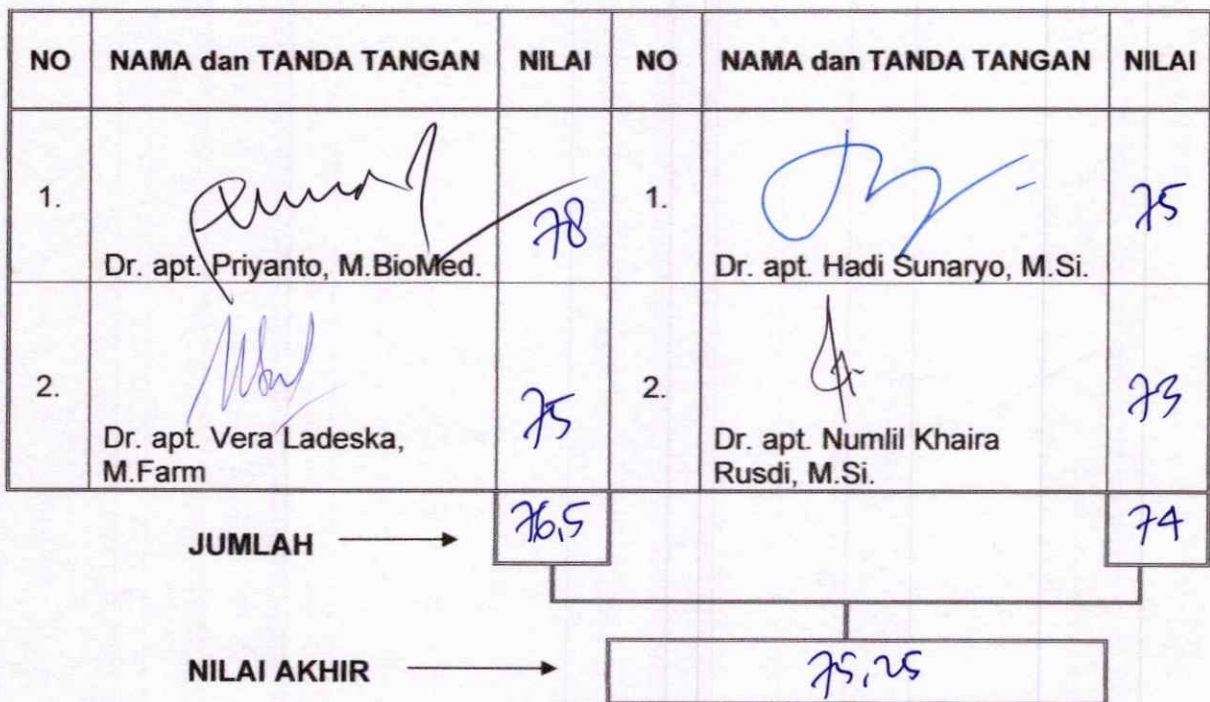 NO NAMA dan TANDA TANGAN NILAI NO NAMA dan TANDA TANGAN NILAI
1. 78 1. 75
Dr. apt. Priyanto, M.BioMed. Dr. apt. Hadi Sunaryo, M.Si.
2. 75 2. 73
Dr. apt. Vera Ladeska, Dr. apt. Numlil Khaira
M.Farm Rusdi, M.Si.
JUMLAH 76,5 74
NILAI AKHIR 75,25